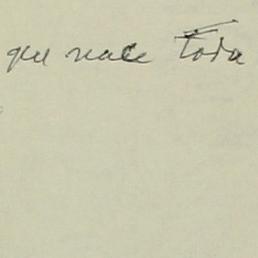 que nace Toda